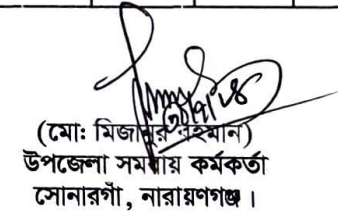 (মো: মিজানুর রহমান)
উপজেলা সমবায় কর্মকর্তা
সোনারগাঁ, নারায়ণগঞ্জ।